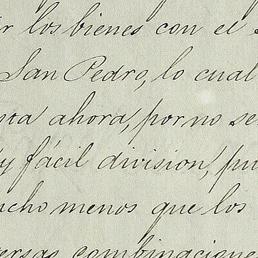 r los bienes con el
San Pedro, lo cual
sta ahora, por no se
y fácil division, pu
ucho menos que los
ersas combinacione